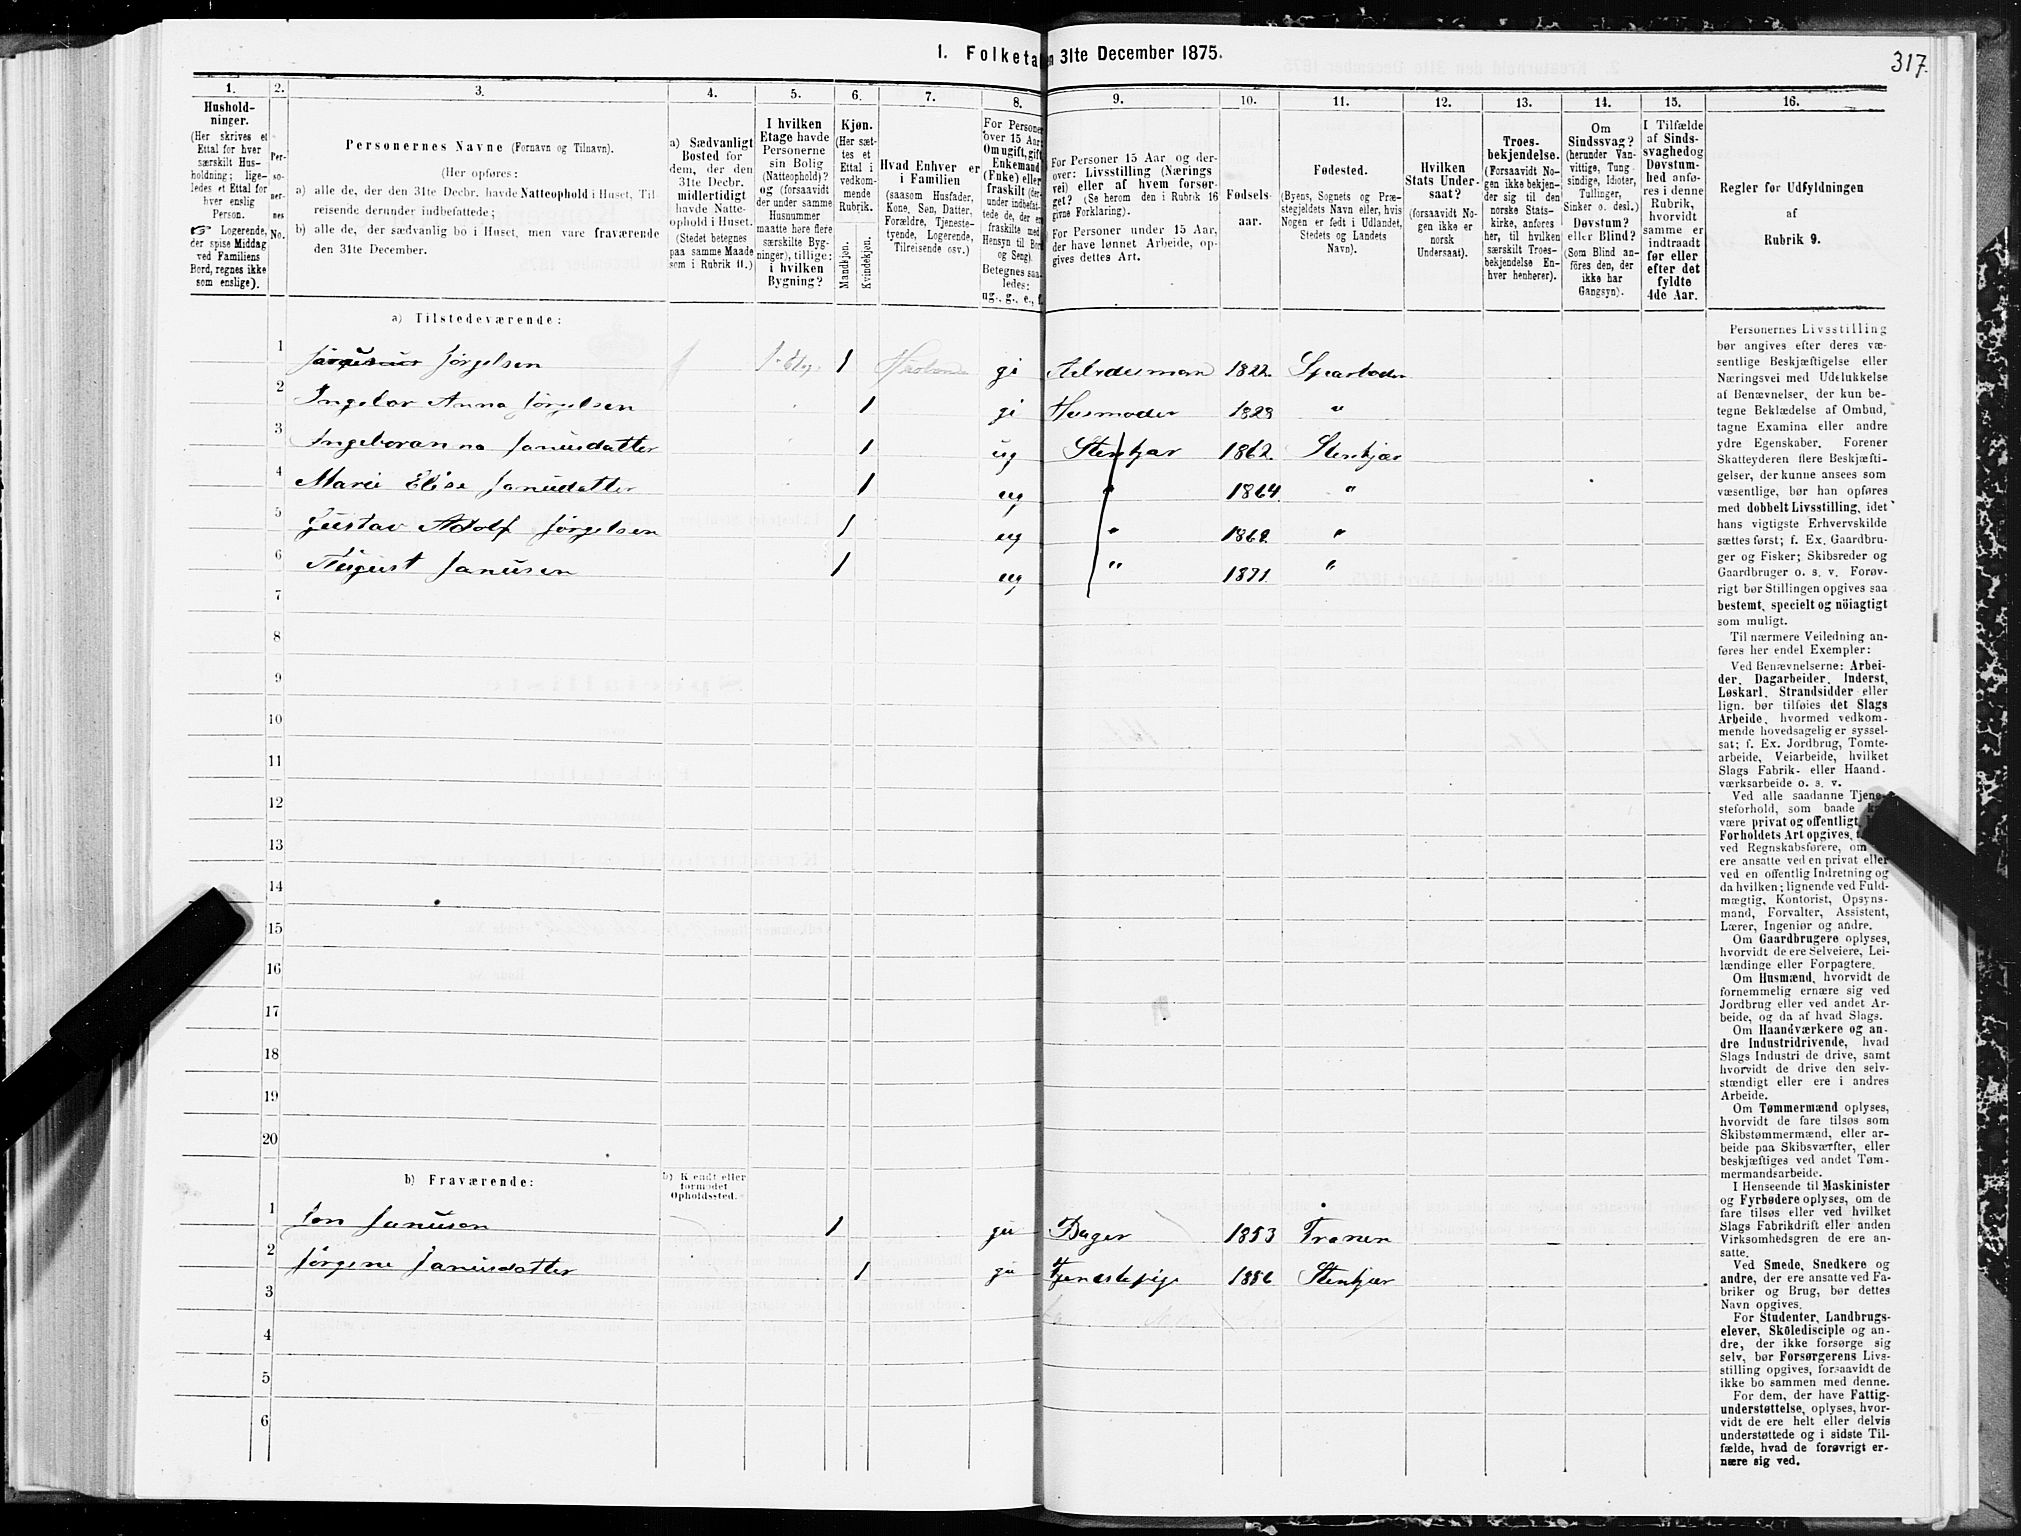 317.
1. Folketa n 31te December 1875.
1.
2.
3.
4.
5.
6.
7.
8.
9.
10.
11.
12.
13.
14.
15.
16.
Hushold-
ninger.
(Her skrives et
Ettal for hver
særskilt Hus-
holdning; lige-
ledes et Ettal for
hver enslig
Person.
☞ Logerende,
der spise Middag
ved Familiens
Bord, regnes ikke
som enslige).
Per-
so-
ner-
nes
No.
Personernes Navne (Fornavn og Tilnavn).
(Her opføres:
a) alle de, der den 31te Decbr. havde Natteophold i Huset, Til-
reisende derunder indbefattede;
b) alle de, der sædvanlig bo i Huset, men vare fraværende
den 31te December.
a) Sædvanligt
Bosted for
dem, der den
31te Decbr.
midlertidigt
havde Natte-
ophold i Huset.
(Stedet betegnes
paa samme Maade
som i Rubrik 11.)
I hvilken
Etage havde
Personerne
sin Bolig
(Natteophold)?
og (forsaavidt
der under samme
Husnummer
maatte høre flere
særskilte Byg-
ninger), tillige:
i hvilken
Bygning?
Kjøn.
(Her sæt-
tes et
Ettal i
vedkom-
mende
Rubrik.
Mandkjøn.
Kvindekjøn.
Hvad Enhver er
i Familien
(saasom Husfader,
Kone, Søn, Datter,
Forældre, Tjeneste-
tyende, Logerende,
Tilreisende osv.)
For Persone
over 15 Aar
Om ugift, gift
Enkemand
(Enke) eller
fraskilt (der-
under indbefat-
tede de, der e
fraskilte med
Hensyn til Bor
og Seng).
Betegnes saa-
ledes:
ug., g., e., f.
For Personer 15 Aar og der-
over: Livsstilling (Nærings
vei) eller af hvem forsør-
get? (Se herom den i Rubrik 16
givne Forklaring).
For Personer under 15 Aar,
der have lønnet Arbeide, op-
gives dettes Art.
Fødsels-
aar.
Fødested.
(Byens, Sognets og Præ-
stegjeldets Navn eller, hvis
Nogen er født i Udlandet,
Stedets og Landets
Navn).
Hvilken
Stats Under-
saat?
(forsaavidt No-
gen ikke er
norsk
Undersaat).
Troes-
bekjendelse.
(Forsaavidt No-
gen ikke bekjen-
der sig til den
norske Stats-
kirke, anføres
her, til hvilken
særskilt Troes-
bekjendelse En-
hver henhører).
Om
Sindssvag?
(herunder Van-
vittige, Tung
sindige, Idioter,
Tullinger,
Sinker o. desl.)
Døvstum?
eller Blind?
(Som Blind an-
föres den, der
ikke har
Gangsyn).
I Tilfælde
af Sinds-
svaghed og
Døvstum-
hed anfø-
res i denne
Rubrik,
hvorvidt
samme er
indtraadt
før eller
efter det
fyldte
4de Aar.
Regler for Udfyldningen
af
Rubrik 9.
a) Tilstedeværende:
1 Jørgelsen 1 1. Etag. 1 gi 1822. Sparboden
2 Ingebor Anna Jørgelsen 1 gi Husmoder 1823 "
3 Ingeboranna Janusdatter 1 ug Stenkjær 1862. Stenkjær
4 Marei Elise Janusdatter 1 ug " 1864 "
5 Gustav Adolf Jørgelsen 1 ug " 1869. "
6 August Janusen 1 ug " 1871. "
7
8
9
10
11
12
13
14
15
16
17
18
19
20
b) Fraværende:
b) Kendt eller
formodet
Opholdssted.
1 Jon Janusen 1 gu Bager 1853 Tranen
2 Jørgine Janusdatter 1 gu Tjenestepige 1856 Stenkjær
3
4
5
6
Personernes Livsstilling
bør angives efter deres væ-
sentlige Beskjæftigelse eller
Næringsvei med Udelukkelse
af Benævnelser, der kun be-
tegne Beklædelse af Ombud,
tagne Examina eller andre
ydre Egenskaber. Forener
Skatteyderen flere Beskjæfti-
gelser, der kunne ansees som
væsentlige, bør han opføres
med dobbelt Livsstilling, idet
hans vigtigste Erhvervskilde
sættes først; f. Ex. Gaardbru-
ger og Fisker; Skibsreder og
Gaardbruger o. s. v. Forøv-
rigt bør Stillingen opgives saa
bestemt, specielt og nöiagtigt
som muligt.
Til nærmere Veiledning an-
føres her endel Exempler:
Ved Benævnelserne: Arbei-
der, Dagarbeider, Inderst,
Løskarl, Strandsidder eller
lign. bør tilføies det Slags
Arbeide, hvormed vedkom-
mende hovedsagelig er syssel-
sat; f. Ex. Jordbrug, Tomte-
arbeide, Veiarbeide, hvilket
Slags Fabrik- eller Haand-
værksarbeide o. s. v.
Ved alle saadanne Tjene-
steforhold, som baade k
være privat og offentligt,
Forholdets Art opgives,
ved Regnskabsførere, om
ere ansatte ved en privat eller
ved en offentlig Indretning og
da hvilken; lignende ved Fuld-
mægtig, Kontorist, Opsyns-
mand, Forvalter, Assistent,
Lærer, Ingeniør og andre.
Om Gaardbrugere oplyses,
hvorvidt de ere Selveiere, Lei-
lændinge eller Forpagtere.
Om Husmænd, hvorvidt de
fornemmelig ernære sig ved
Jordbrug eller ved andet Ar-
beide, og da af hvad Slags.
Om Haandværkere og an-
dre Industridrivende, hvad
Slags Industri de drive, samt
hvorvidt de drive den selv-
stændigt eller ere i andres
Arbeide.
Om Tømmermænd oplyses,
hvorvidt de fare tilsøs som
Skibstømmermænd, eller ar-
beide paa Skibsværfter, eller
beskjæftiges ved andet Tøm-
mermandsarbeide.
I Henseende til Maskinister
og Fyrbødere oplyses, om de
fare tilsøs eller ved hvilket
Slags Fabrikdrift eller anden
Virksomhedsgren de ere an-
satte.
Ved Smede, Snedkere og
andre, der ere ansatte ved Fa-
briker og Brug, bør dettes
Navn opgives.
For Studenter, Landbrugs-
elever, Skôledisciple og an-
dre, der ikke forsørge sig
selv, bør Forsørgerens Livs-
stilling opgives, forsaavidt de
ikke bo sammen med denne.
For dem, der have Fattig-
understøttelse, oplyses, hvor-
vidt de ere helt eller delvis
understøttede og i sidste Til-
fælde, hvad de forøvrigt er-
nære sig ved.